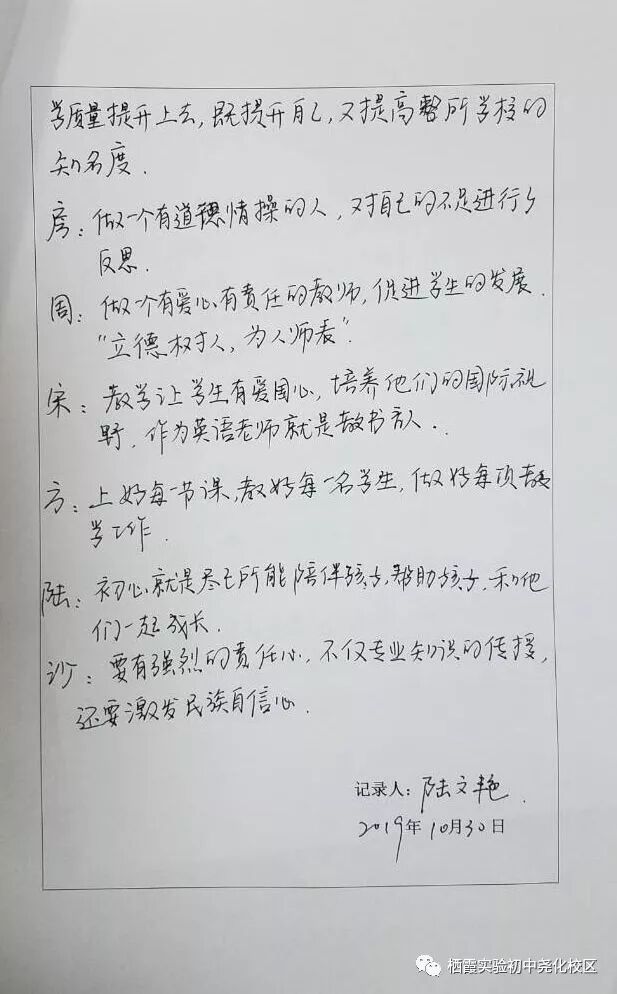 学质量提升上去,既提升自己,又提高整所学校的
知名度.
房:做一个有道德情操的人,对自己的不足进行
反思.
周:做一个有爱心有责任的教师,促进学生的发展.
"立德树人,为人师表".
宋:教学让学生有爱国心,培养他们的国际视
野,作为英语老师就是教书育人..
方:上好每一节课,教好每一名学生,做好每项教
学工作.
陆:初心就是尽己所能陪伴孩子,帮助孩子,和他
们一起成长.
沙:要有强烈的责任心,不仅专业知识的传授,
还要激发民族自信心.
记录人:陆文艳.
2019年10月30日
栖霞实验初中尧化校区